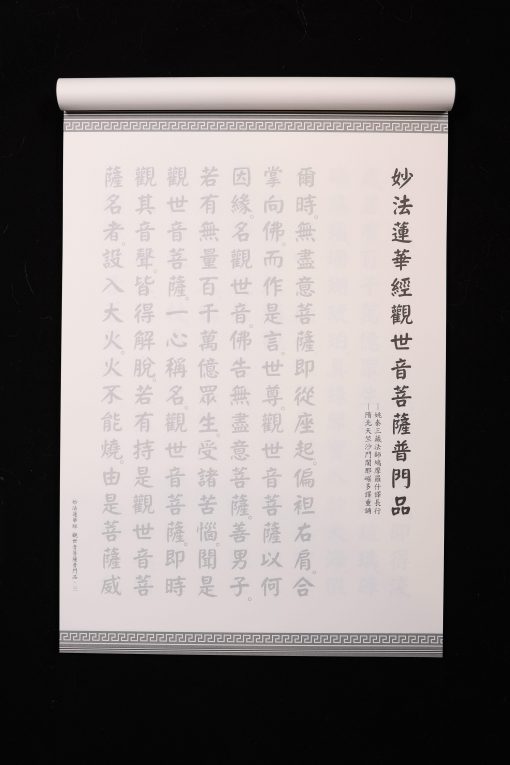 妙法蓮華經觀世音菩薩普門品
姚秦三藏法師鳩摩羅什譯長行
隋北天竺沙門闍那崛多譯重誦
爾時。無盡意菩薩即從座起。偏袒右肩。合
掌向佛。而作是言。世尊。觀世音菩薩以何
因緣。名觀世音。佛告無盡意菩薩。善男子。
若有無量百千萬億眾生。受諸苦惱。聞是
觀世音菩薩。一心稱名。觀世音菩薩。即時
觀其音聲。皆得解脫。若有持是觀世音菩
薩名者。設入大火。火不能燒。由是菩薩威
妙法蓮華經 觀世音菩薩普門品